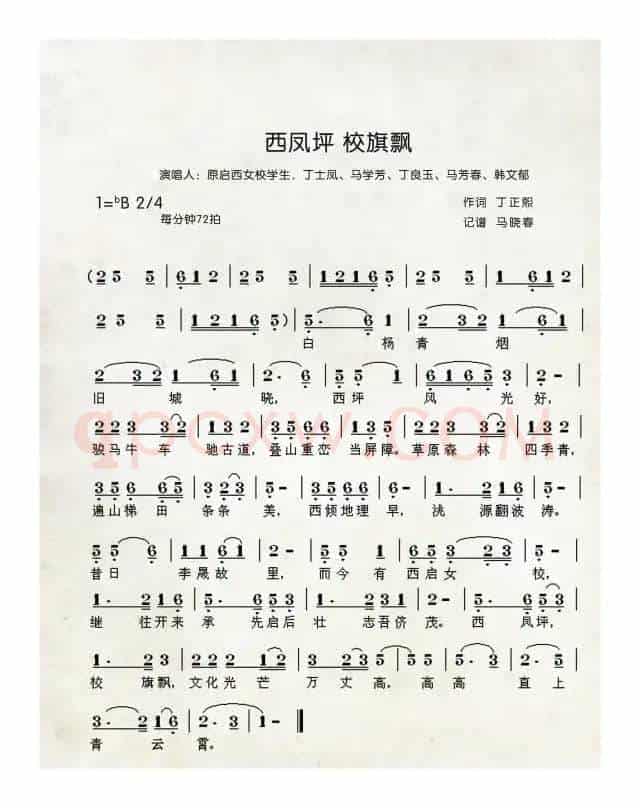 西凤坪 校旗飘
演唱人：原启西女校学生．丁士凤、马学芳、丁良玉、马芳春、韩文郁
1=ᵇB 2/4
作词 丁正熙
每分钟72拍
记谱 马晓春
(2 5 5 | 6 1 2 | 2 5 5 | 1 2 1 6 5 | 2 5 5 | 6 1 2 |
2 5 5 | 1 2 1 6 5) | 5· 6 1 | 2 3 2 1 6 |
白 杨 青 烟
2 3 2 1 6 1 | 2· 6 | 5 5 | 6 1 6 5 3 | 5 - |
旧 城 晓， 西坪 凤 光好，
2 2 3 2 2 3 | 2 2 3 | 3 5 6 6 | 5 6 5 | 2 2 3 2 1 2 | 2 2 3 |
骏马牛 车 驰古道，叠山重峦 当屏障。草原森 林 四季青，
3 5 6 6 5 | 3 2 3 | 2 - | 3 5 6 5 | 6 - | 1· 2 | 6 5 3 | 5 - |
遍山梯 田 条条 美， 西倾地理 早，洮 源翻波 涛。
5 5 6 | 1 1 6 1 | 2 - | 5 5 | 6 5 | 6 5 3 2 3 | 2 - |
昔日 李晟故 里， 而今 有 西启女 校，
1· 2 1 6 1 | 5· 6 5 3 | 1· 2 1 6 1 | 2· 6 | 5 5 3 |
继 往开来 承 先启后 壮 志吾侪 茂。西 凤坪，
1· 2 3 | 2 2 2 | 2 1 2 | 3 5 | 5 3 | 2 3 | 5 5 |
校 旗飘，文化光 芒 万 丈 高，高高 直上
3· 2 1 6 | 2· 3 2 | 1 - ‖
青 云 霄。
qpcxw.COM